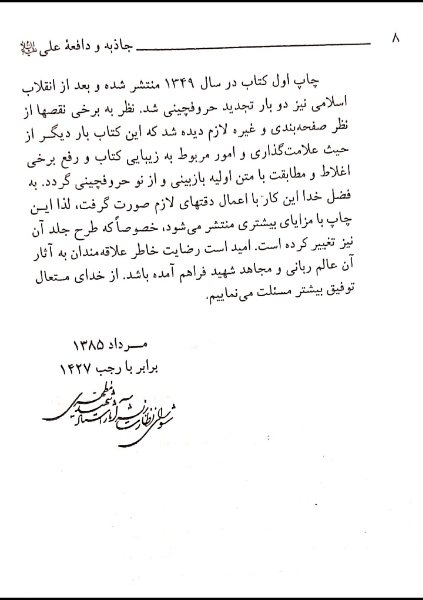 ۸
جاذبه و دافعهٔ علی علیه‌السلام
چاپ اول کتاب در سال ۱۳۴۹ منتشر شده و بعد از انقلاب
اسلامی نیز دو بار تجدید حروفچینی شد. نظر به برخی نقصها از
نظر صفحه‌بندی و غیره لازم دیده شد که این کتاب بار دیگر از
حیث علامت‌گذاری و امور مربوط به زیبایی کتاب و رفع برخی
اغلاط و مطابقت با متن اولیه بازبینی و از نو حروفچینی گردد. به
فضل خدا این کار با اعمال دقتهای لازم صورت گرفت، لذا این
چاپ با مزایای بیشتری منتشر می‌شود، خصوصاً که طرح جلد آن
نیز تغییر کرده است. امید است رضایت خاطر علاقه‌مندان به آثار
آن عالم ربانی و مجاهد شهید فراهم آمده باشد. از خدای متعال
توفیق بیشتر مسئلت می‌نماییم.
مرداد ۱۳۸۵
برابر با رجب ۱۴۲۷
شورای نظارت بر نشر آثار استاد شهید مطهری